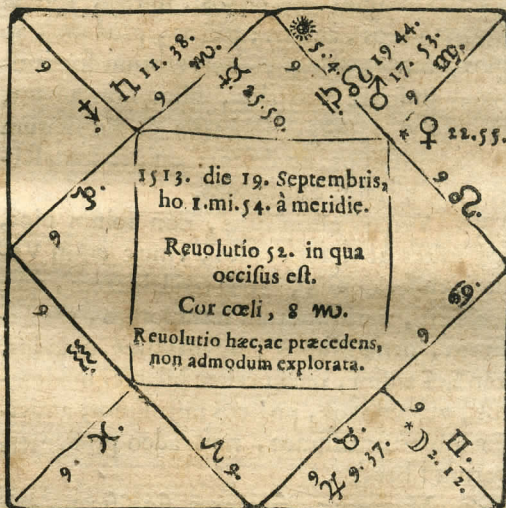 9
♄ 11. 38.
♏
9
☿ 25. 50.
9
☀ 5. 4.
♎
☊ 19 44.
♂ 17. 53.
♍
* ♀ 22. 55.
9
♌
♐
♑
9
1513. die 19. Septembris,
ho. 1. mi. 54. à meridie.
Reuolutio 52. in qua
occisus est.
Cor cœli, 8 ♏.
Reuolutio hæc, ac præcedens,
non admodum explorata.
♋
9
9
♒
♓
9.
♈ 9.
♉
9
♃ 9. 37.
9
* ☽ 2. 12.
♊